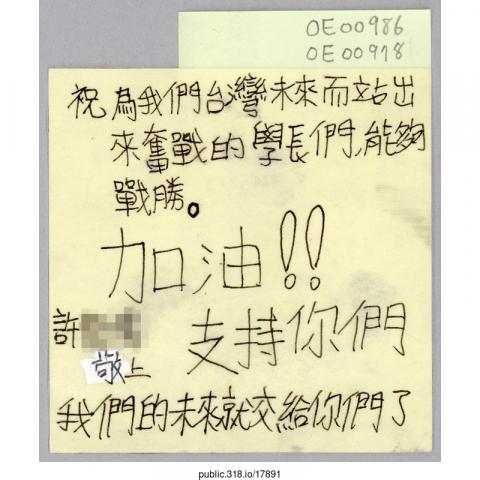 OE00986
OE00918
祝為我們台灣未來而站出
來奮戰的學長們,能夠
戰勝。
加油!!
許
支持你們
敬上
我們的未來就交給你們了
public.318.io/17891